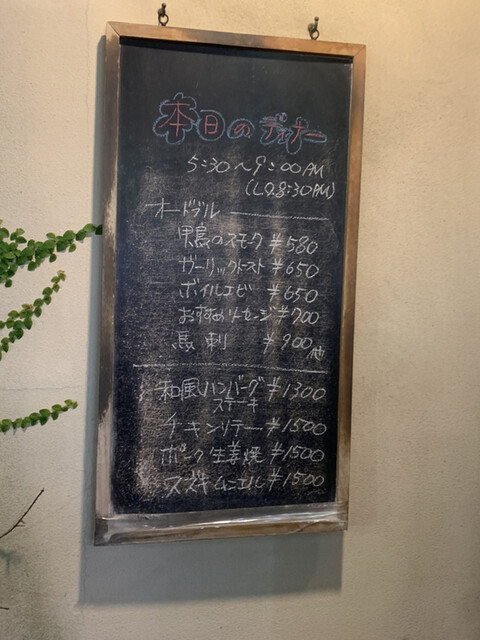 本日のディナー
5:30〜9:00AM
(L.O.8:30AM)
オードブル
鴨のスモーク ¥580
ガーリックトースト ¥650
ボイルエビ ¥650
おすすめソーセージ ¥700
馬刺 ¥900 他
和風ハンバーグ ¥1300
ステーキ
チキンソテー ¥1500
ポーク生姜焼 ¥1500
スズキムニエル ¥1500